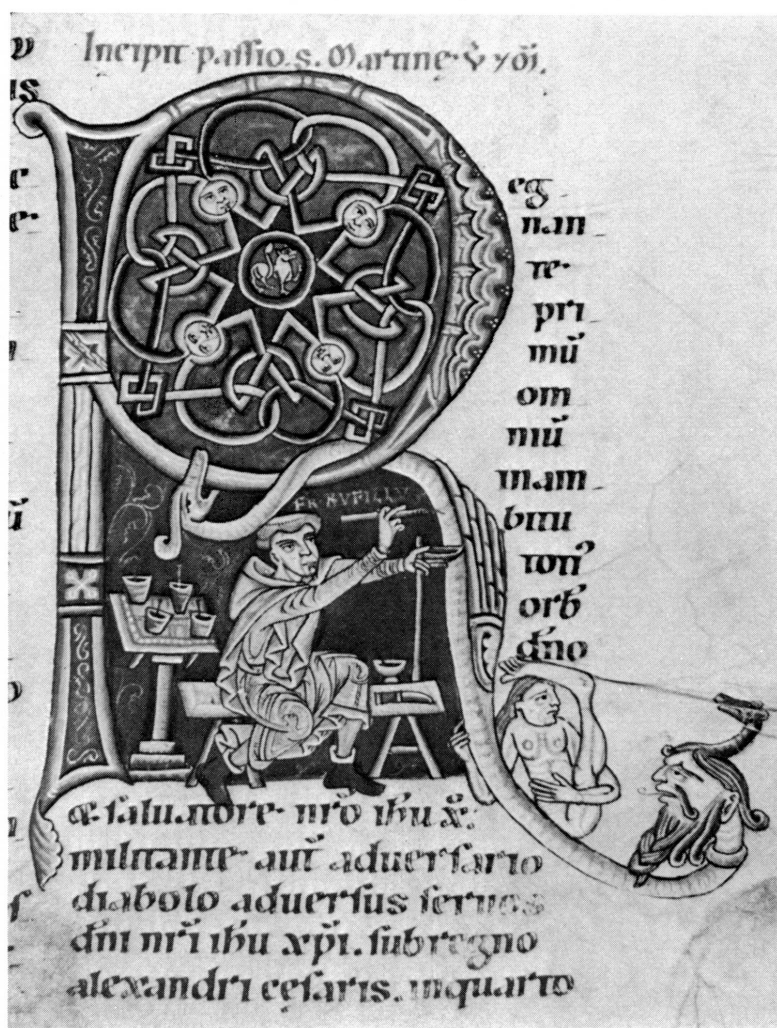 Incipit passio. s. Martine. v̄ ⁊ m̄.
R eg
nan
te.
pri
mū
om
niū
inam
bitu
toti᾽
orb̄
dn̄o
FR RVFILLVS
& saluatore. nr̄o ihū x̄:
militante. aut̄ aduersario
diabolo aduersus seruos
dn̄i nr̄i ihū xp̄i. sub regno
alexandri cęsaris. inquarto